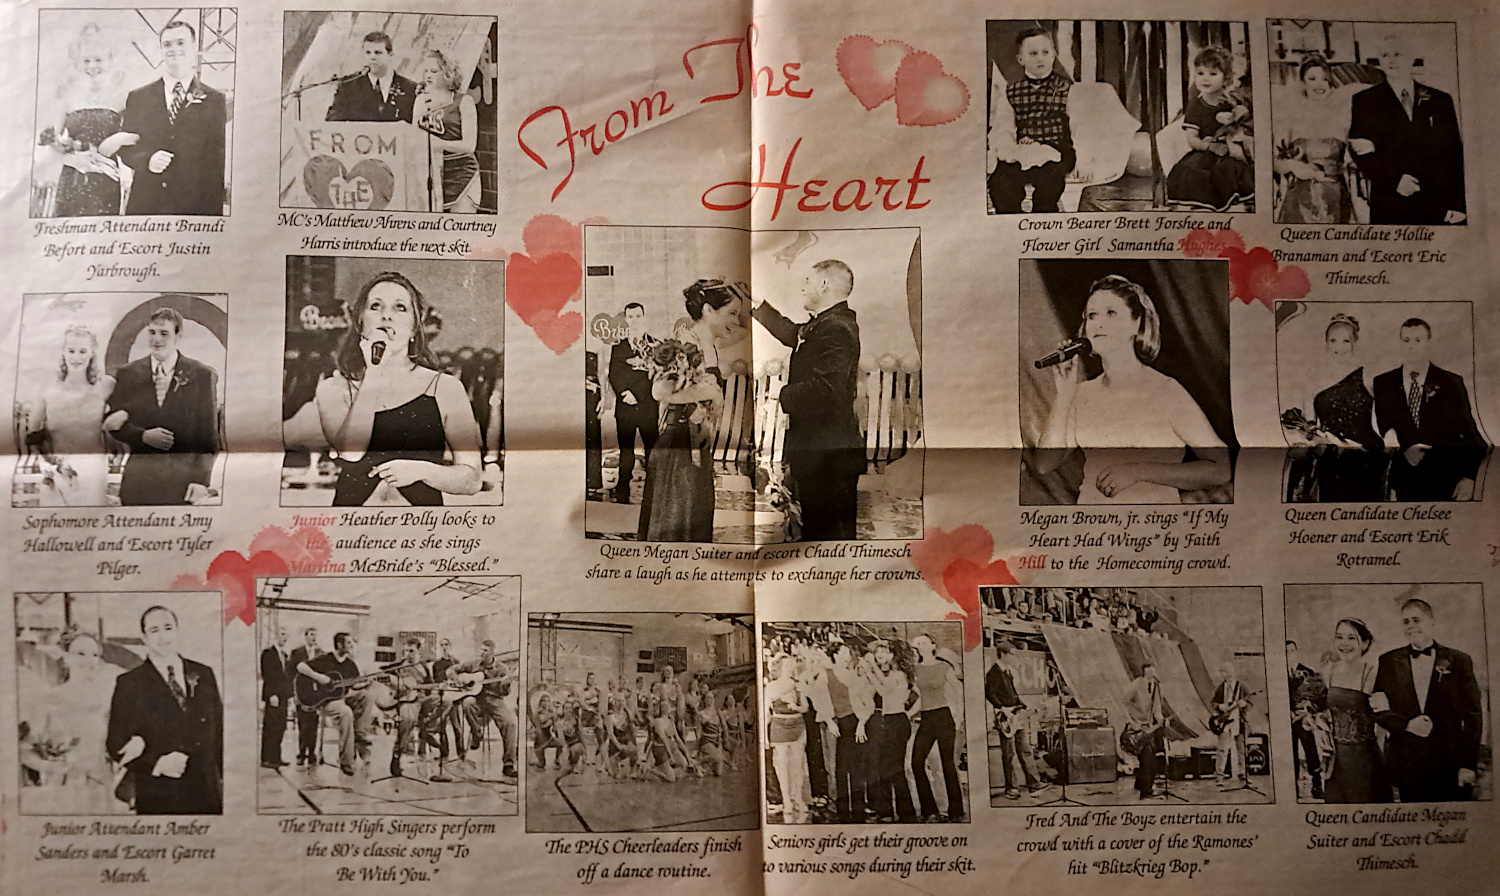 From The
Heart
FROM
THE
Freshman Attendant Brandi
Befort and Escort Justin
Yarbrough.
MC's Matthew Ahrens and Courtney
Harris introduce the next skit.
Crown Bearer Brett Forshee and
Flower Girl Samantha Hughes.
Queen Candidate Hollie
Branaman and Escort Eric
Thimesch.
Sophomore Attendant Amy
Hallowell and Escort Tyler
Pilger.
Junior Heather Polly looks to
the audience as she sings
Martina McBride's "Blessed."
Queen Megan Suiter and escort Chadd Thimesch
share a laugh as he attempts to exchange her crowns.
Megan Brown, jr. sings "If My
Heart Had Wings" by Faith
Hill to the Homecoming crowd.
Queen Candidate Chelsee
Hoener and Escort Erik
Rotramel.
Junior Attendant Amber
Sanders and Escort Garret
Marsh.
The Pratt High Singers perform
the 80's classic song "To
Be With You."
The PHS Cheerleaders finish
off a dance routine.
Seniors girls get their groove on
to various songs during their skit.
Fred And The Boyz entertain the
crowd with a cover of the Ramones'
hit "Blitzkrieg Bop."
Queen Candidate Megan
Suiter and Escort Chadd
Thimesch.